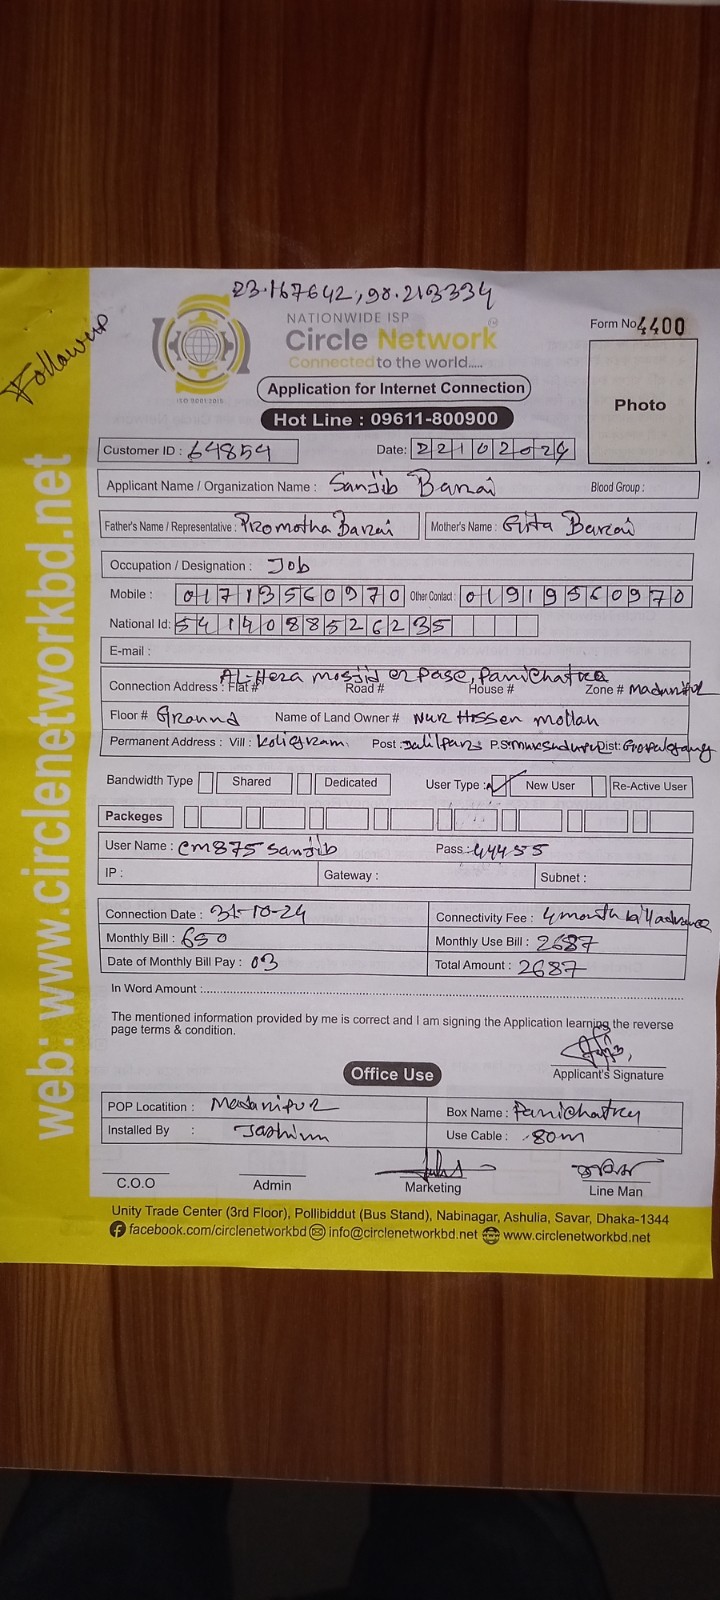 23.167642, 90.213334
Followup
NATIONWIDE ISP
Circle Network
Connected to the world.....
ISO 9001:2015
Form No 4400
Application for Internet Connection
Hot Line : 09611-800900
Photo
Customer ID : 64854 Date: 22102024
Applicant Name / Organization Name : Sanjib Barai Blood Group :
Father's Name / Representative : Promotha Barai Mother's Name : Gita Barai
Occupation / Designation : Job
Mobile : 01713560970 Other Contact : 01919560970
National Id: 5414088526235
E-mail :
Al-Hera mosjid er pase, Panichatra
Connection Address : Flat # Road # House # Zone # Madaripur
Floor # Ground Name of Land Owner # Nur Hossen mollah
Permanent Address : Vill : Koligram Post : Jalilpar P.S: Muksudupur Dist: Gopalgang
Bandwidth Type Shared Dedicated User Type : ✓ New User Re-Active User
Packeges
User Name : cm875sanjib Pass : 44455
IP : Gateway : Subnet :
Connection Date : 31-10-24 Connectivity Fee : 4 month bill advance
Monthly Bill : 650 Monthly Use Bill : 2687
Date of Monthly Bill Pay : 03 Total Amount : 2687
In Word Amount :
The mentioned information provided by me is correct and I am signing the Application learning the reverse
page terms & condition.
Applicant's Signature
Office Use
POP Locatition : Madaripur Box Name : Panichatra
Installed By : Jashim Use Cable : 80m
C.O.O Admin Marketing Line Man
Unity Trade Center (3rd Floor), Pollibiddut (Bus Stand), Nabinagar, Ashulia, Savar, Dhaka-1344
facebook.com/circlenetworkbd info@circlenetworkbd.net www.circlenetworkbd.net
web: www.circlenetworkbd.net